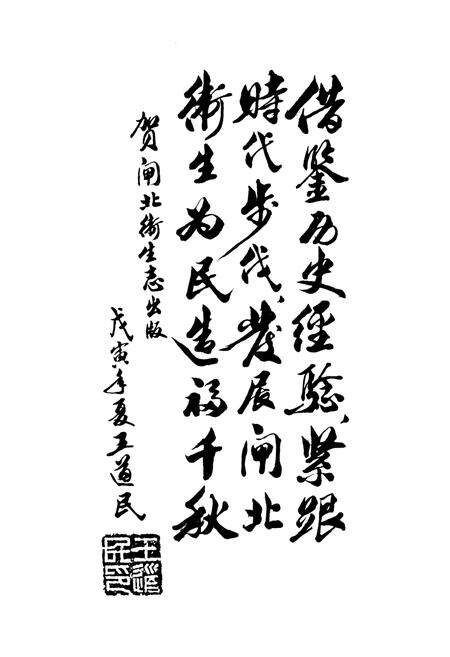 借鑒历史經驗、紧跟
時代步伐、發展闸北
衛生为民造福千秋
贺闸北衛生志出版
戊寅年夏王道民
王道民印